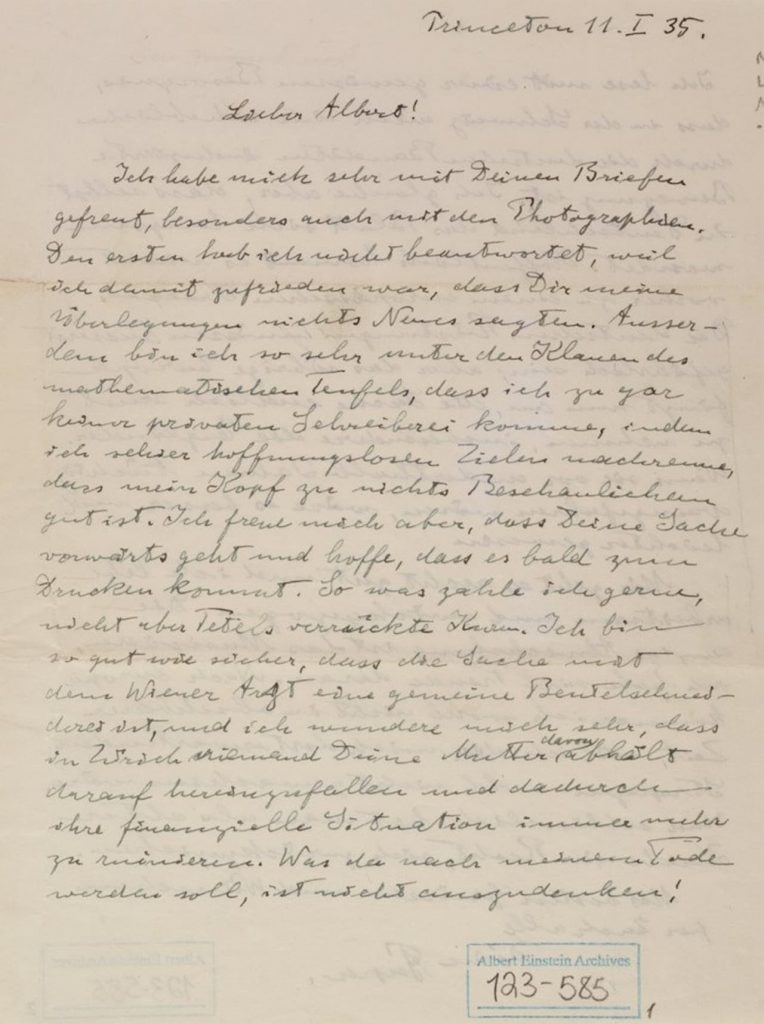 Princeton 11. I 35.
Lieber Albert!
Ich habe mich sehr mit Deinen Briefen
gefreut, besonders auch mit den Photographien.
Den ersten hab ich nicht beantwortet, weil
ich damit zufrieden war, dass Dir meine
Überlegungen nichts Neues sagten. Ausser-
dem bin ich so sehr unter den Klauen des
mathematischen Teufels, dass ich zu gar
keiner privaten Schreiberei komme, indem
ich schier hoffnungslosen Zielen nachrenne,
dass mein Kopf zu nichts Beschaulichem
gut ist. Ich freue mich aber, dass Deine Sache
vorwärts geht und hoffe, dass es bald zum
Drucken kommt. So was zahle ich gerne,
nicht aber Tetels verrückte Kuren. Ich bin
so gut wie sicher, dass die Sache mit
dem Wiener Arzt eine gemeine Beutelschnei-
derei ist, und ich wundere mich sehr, dass
in Zürich niemand Deine Mutter davon abhält
darauf hereinzufallen und dadurch
ihre finanzielle Situation immer mehr
zu ruinieren. Was da nach meinem Tode
werden soll, ist nicht auszudenken!
Albert Einstein Archives
123-585
1